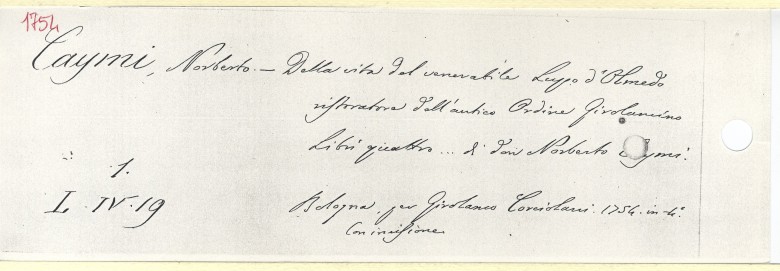 1754
Caymi, Norberto. — Della vita del venerabile Lupo d'Olmedo
ristoratore dell'antico Ordine Girolamino
Libri quattro... di don Norberto Caymi.
1.
L. IV. 19
Bologna, per Girolamo Corciolani. 1754. in-4°.
Con incisione